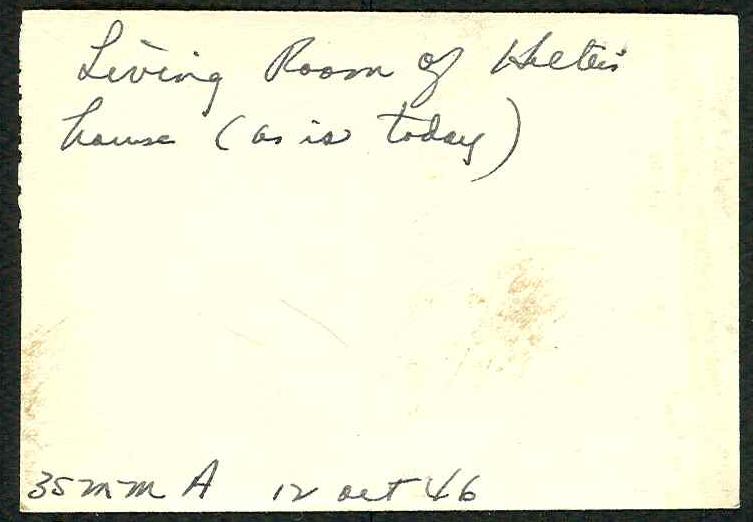 Living Room of Hilter's
house (as is today)
35mm A 12 Oct 46